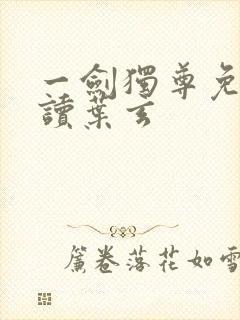 一劍獨尊免
讀葉玄
簾卷落花如雪